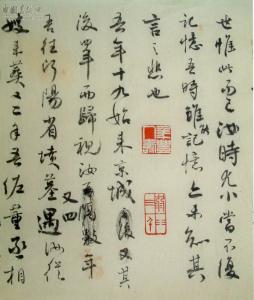 世惟此而已汝時尤小當不復
記憶吾時雖能記憶亦未知其
言之悲也
吾年十九始来京城其
後四年而歸視汝又四年
吾往河陽省墳墓遇汝從
嫂来葬二年吾佐董丞相